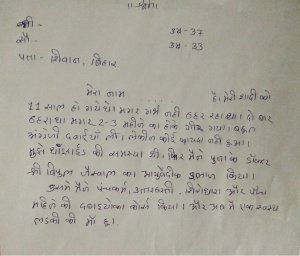 ॥ श्री ॥
श्री-
उम्र-37
सौ-
उम्र-33
पता:- सिवान, बिहार
मेरा नाम ........ है। मेरी शादी को
11 साल हो गये थे। मगर गर्भ नही ठहर रहा था। दो बार
ठहरा था मगर 2-3 महीने का होके गीर गया। बहुत
अंग्रेजी दवाईयाँ ली। लेकीन कोई फायदा नहीं हुआ।
मुझे थाईराईड की समस्या थी, फिर मैने पुना के डॉक्टर
श्री विपुल जैस्वाल का आयुर्वेदीक इलाज किया।
इसमे मैने पंचकर्म, उत्तरबस्ती, शिरोधारा और पाँच
महिने की दवाइयोका कोर्स किया। और अब मैं एक स्वस्थ
लडकी की माँ हु।